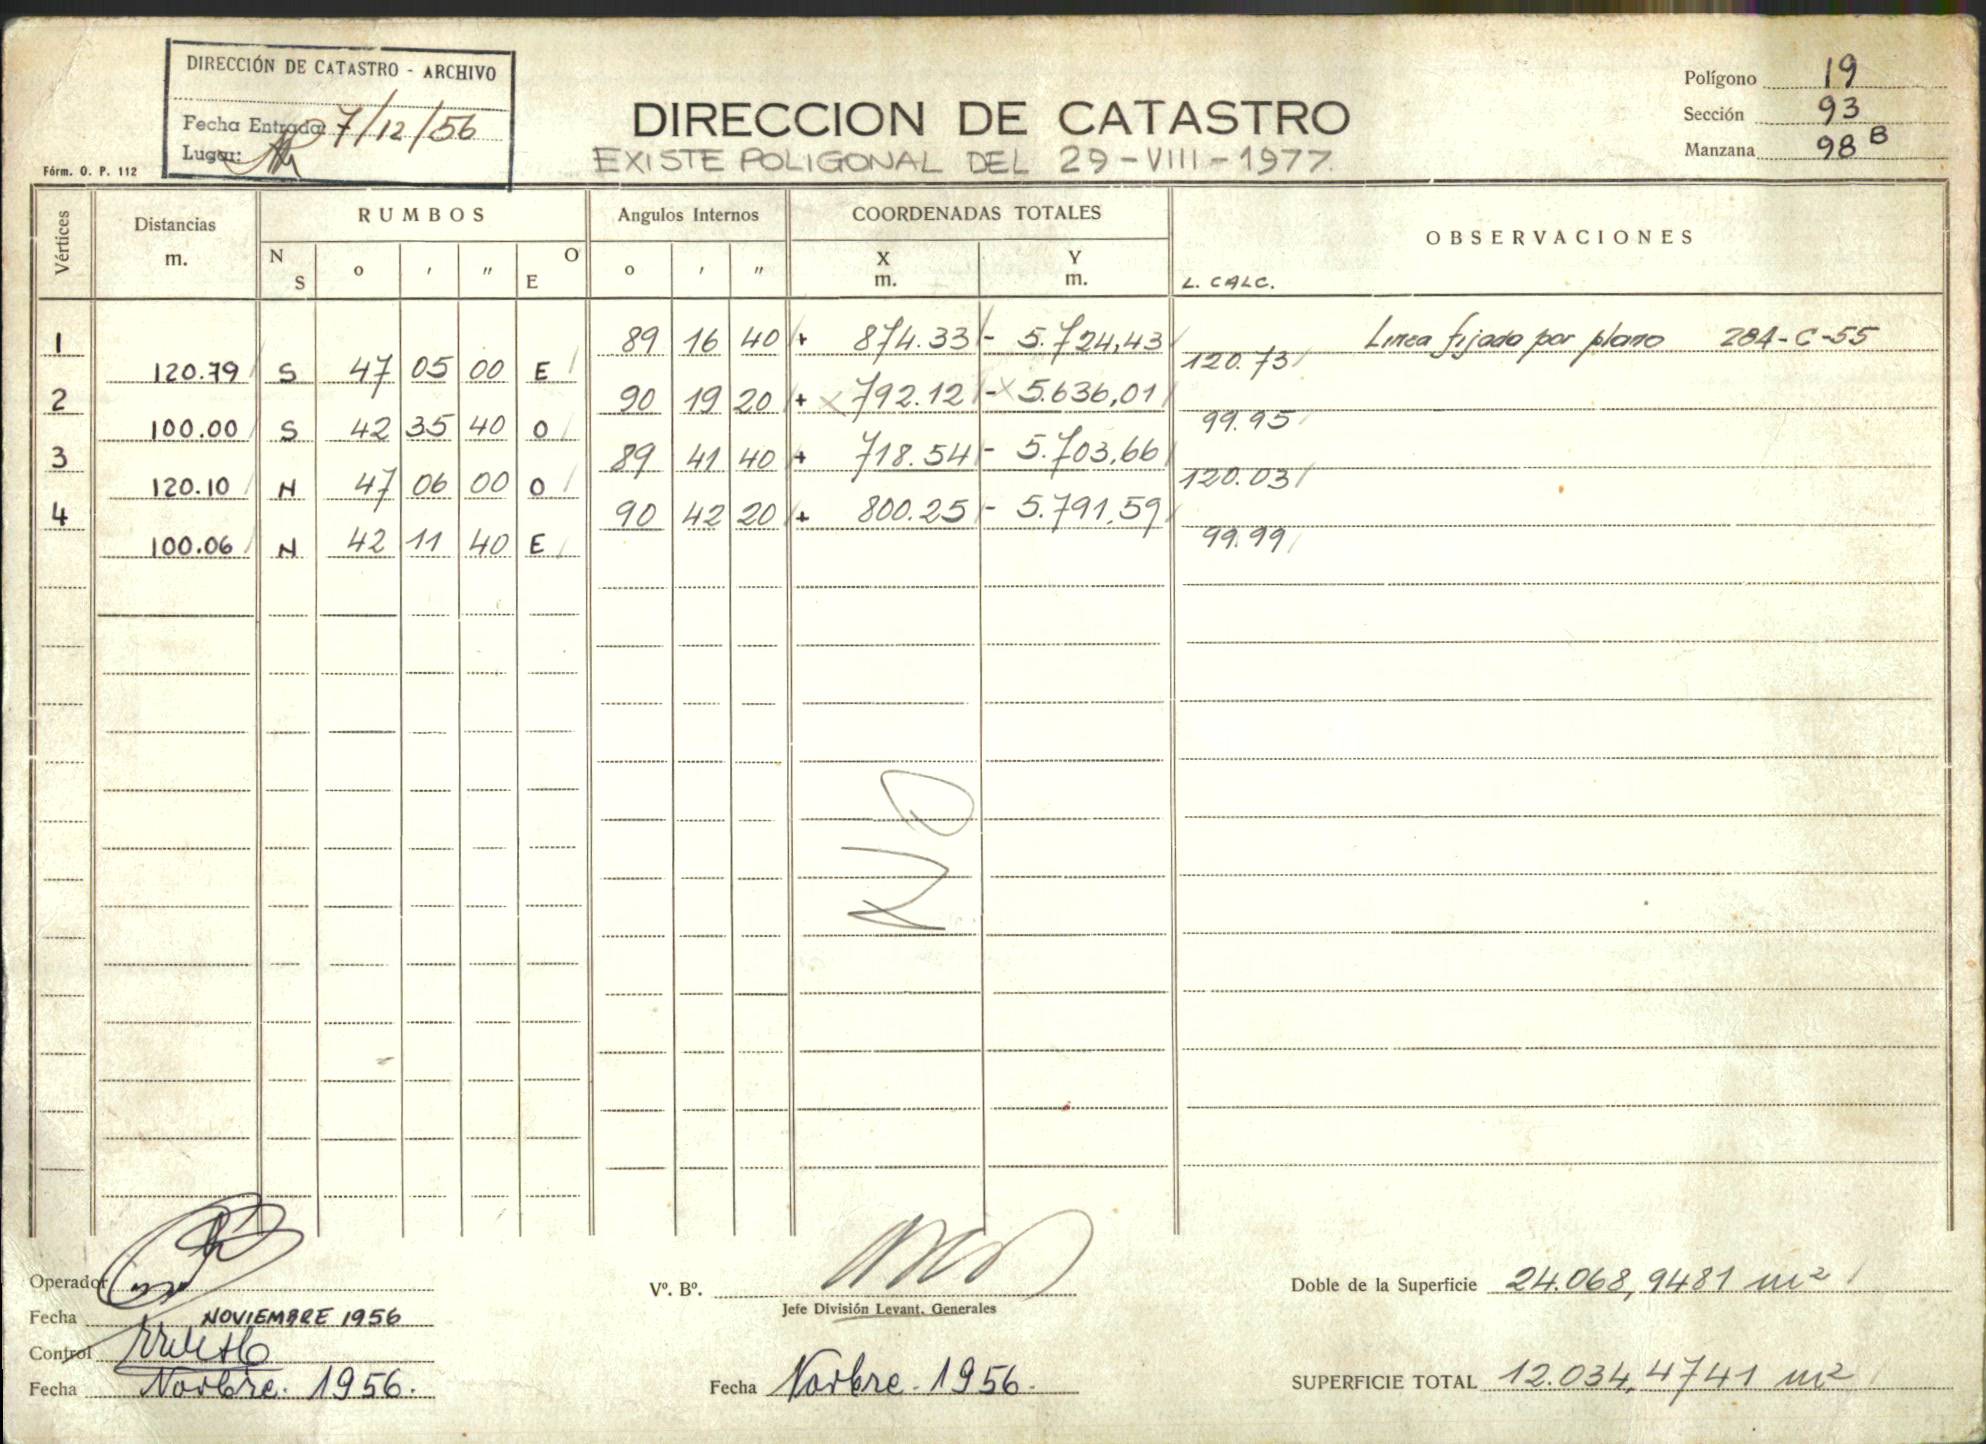 DIRECCIÓN DE CATASTRO - ARCHIVO
Fecha Entrada: 7/12/56
Lugar:
Fórm. O. P. 112
DIRECCION DE CATASTRO
EXISTE POLIGONAL DEL 29-VIII-1977.
Polígono 19
Sección 93
Manzana 98 B
Vértices Distancias m. RUMBOS Angulos Internos COORDENADAS TOTALES OBSERVACIONES
N S o ' " E O o ' " X m. Y m. L. CALC.
1 89 16 40 + 874.33 - 5.724,43 Linea fijada por plano 284-C-55
120.79 S 47 05 00 E 120.73
2 90 19 20 + 792.12 - 5.636,01
100.00 S 42 35 40 O 99.95
3 89 41 40 + 718.54 - 5.703,66
120.10 N 47 06 00 O 120.03
4 90 42 20 + 800.25 - 5.791,59
100.06 N 42 11 40 E 99.99
NO
Operador
Fecha NOVIEMBRE 1956
Control
Fecha Novbre. 1956.
Vº. Bº.
Jefe División Levant. Generales
Fecha Novbre. 1956.
Doble de la Superficie 24.068,9481 m²
SUPERFICIE TOTAL 12.034,4741 m²